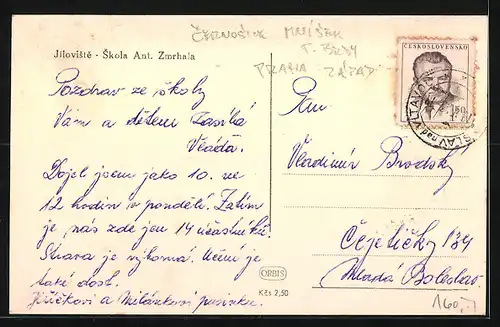 ČERNOŠICE MNÍŠEK
P. BRDY
PRAHA ZÁPAD
Jíloviště - Škola Ant. Zmrhala
ČESKOSLOVENSKO
1.50
VLTAVOU
Pozdrav ze školy
Vám a dětem zasílá
Vláďa.
Dojel jsem jako 10. ve
12 hodin v pondělí. Zatím
je nás zde jen 14 účastníků.
Strava je výborná. Učení je
také dost.
Jiříčkovi a Milánkovi pusinku.
Pan
Vladimír Brodský
Čejetičky 134
Mladá Boleslav
ORBIS
Kčs 2,50
160,-